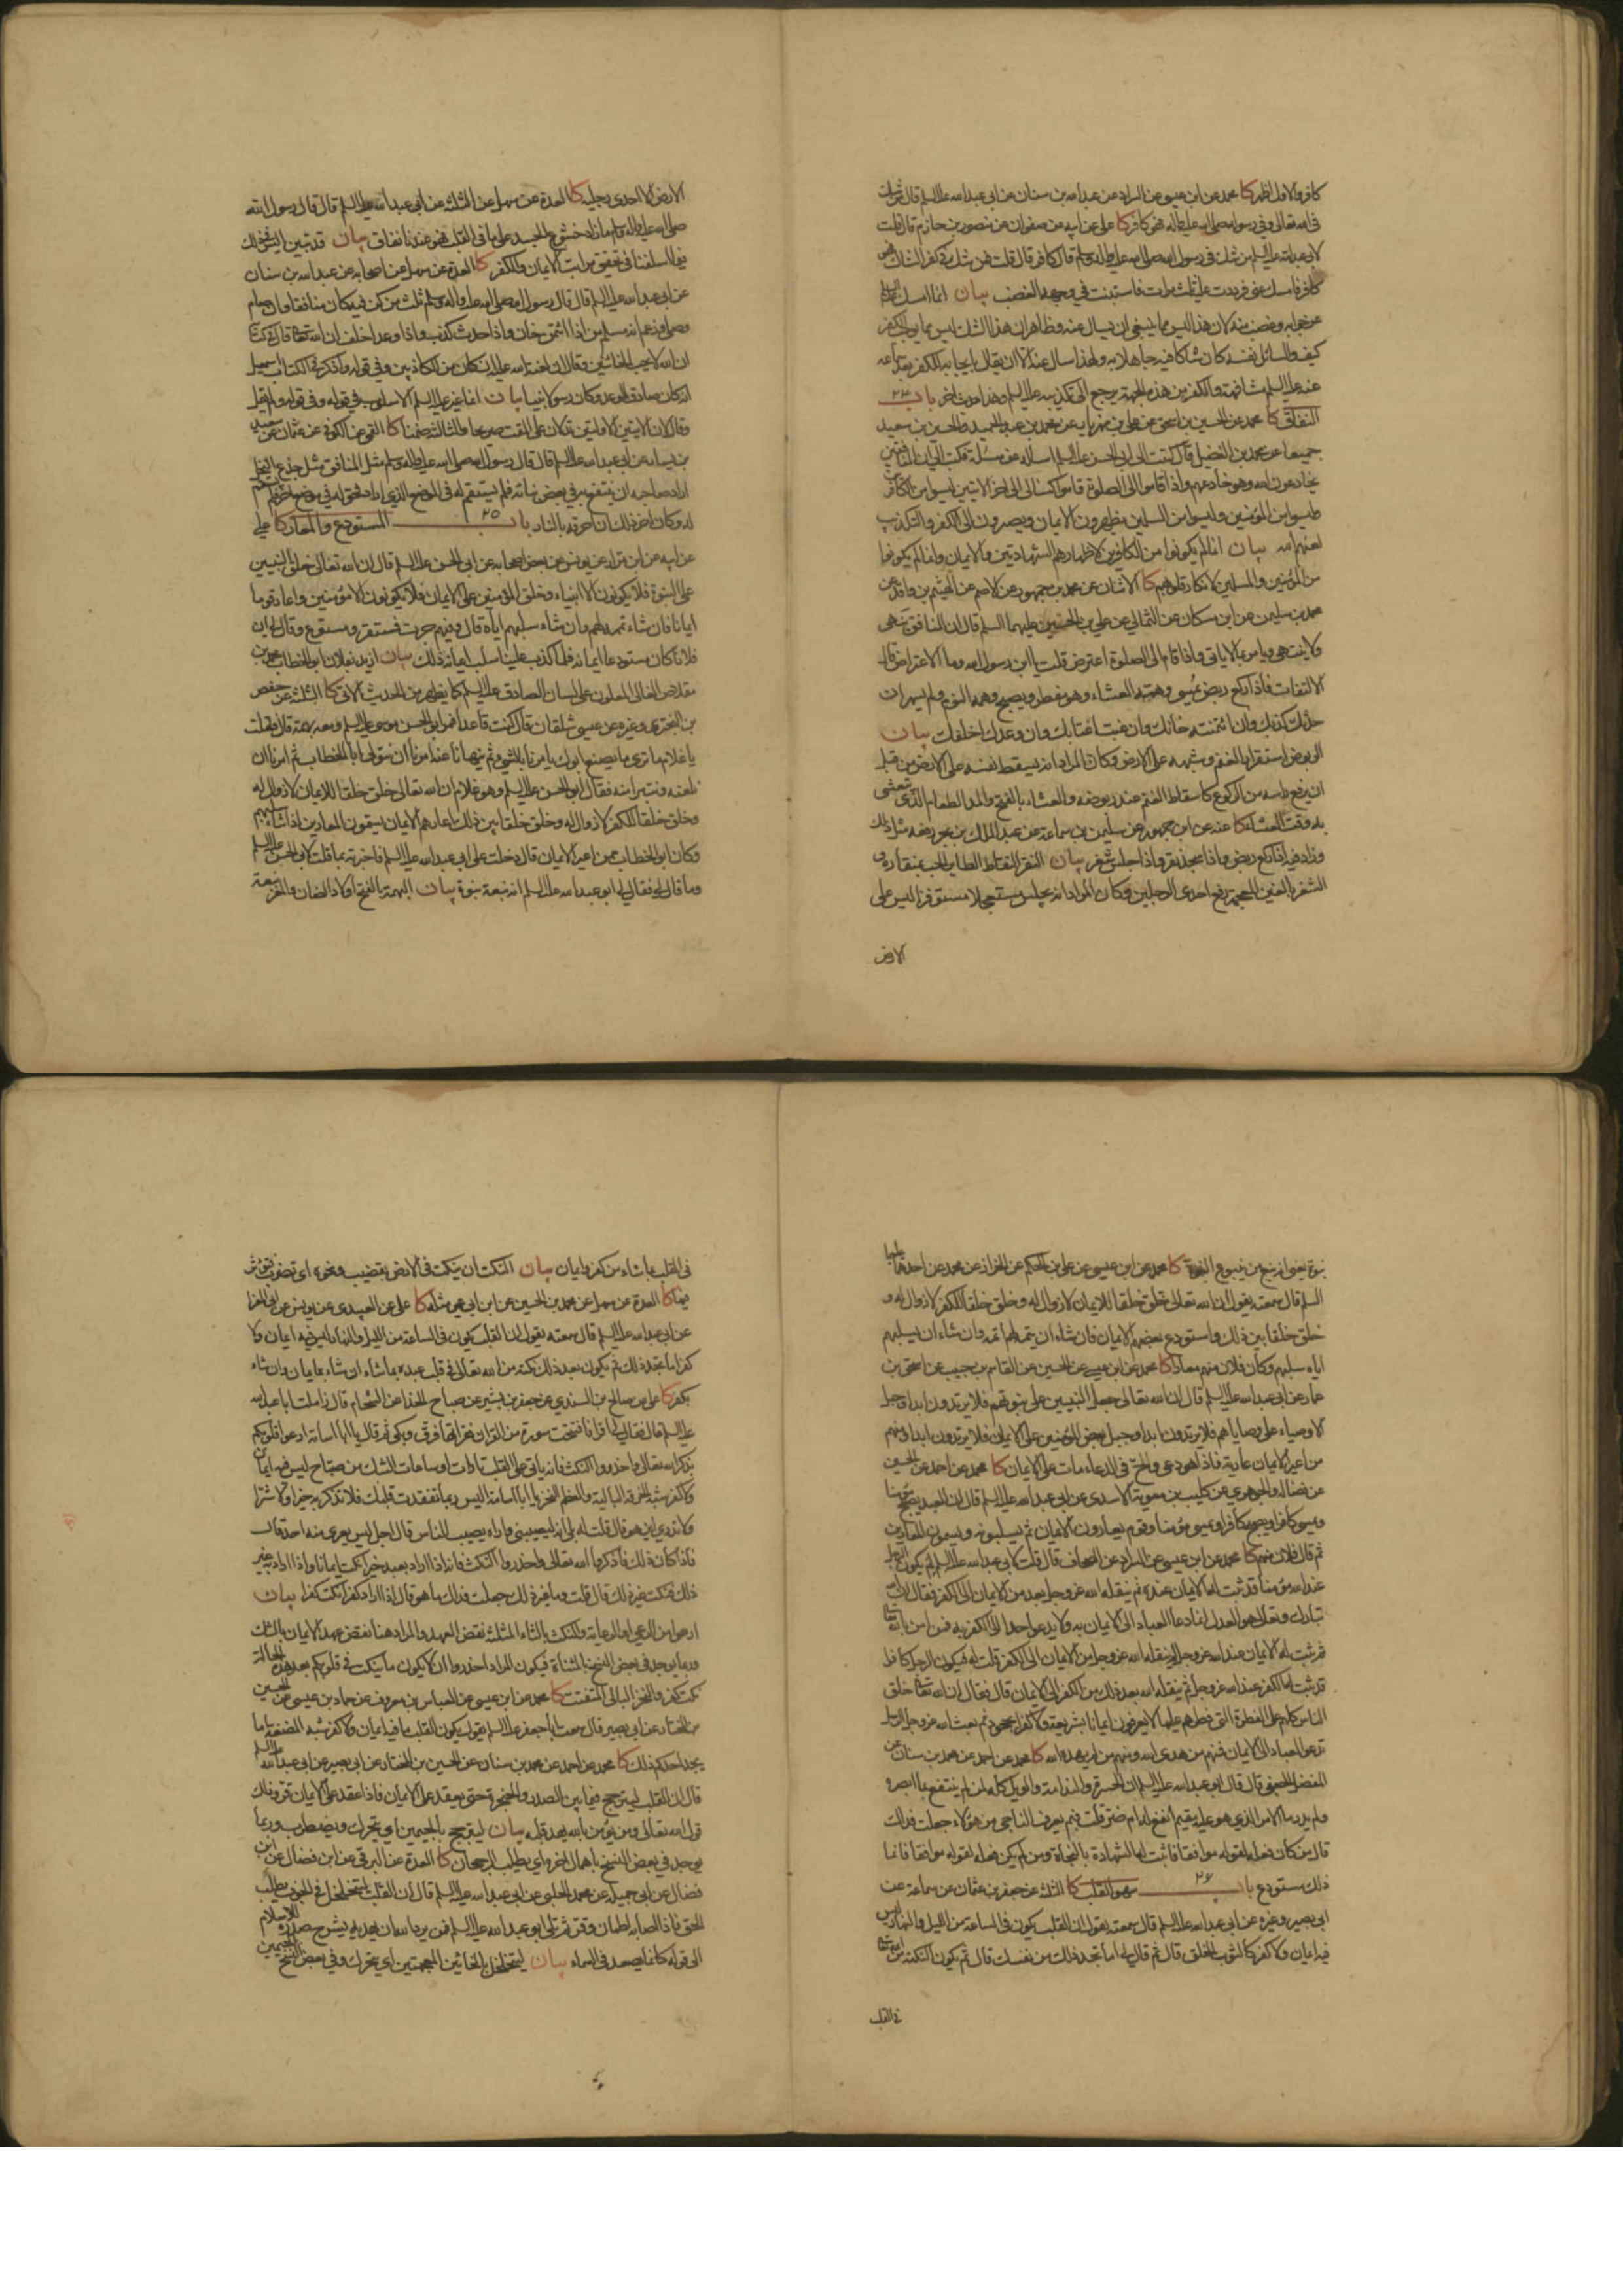 كافر والاول اظهر كا محمد عن ابن عيسى عن السراد عن عبد الله بن سنان عن ابى عبد الله عليه السلم قال من شك
فى الله تعالى وفى رسوله صلى الله عليه واله فهو كافر كا على عن ابيه عن صفوان عن منصور بن حازم قال قلت
لابى عبد الله عليه السلم من شك فى رسول الله صلى الله عليه واله وسلم قال كافر قال قلت فمن شك فى كفر الشاك فهو
كافر فامسك عنى فرددت عليه ثلث مرات فاستبنت فى وجهه الغضب بيان انما امسك عليه السلم
عن جوابه وغضب منه لان هذا ليس مما ينبغى ان يسال عنه وظاهر ان هذا الشك ليس مما يوجب الكفر
كيف والسائل نفسه كان شاكا فيه جاهلا به ولهذا سال عنه الا ان يقال بايجابه الكفر بعد سماعه
عنه عليه السلم مشافهة والكفر من هذه الجهة يرجع الى تكذيبه عليه السلم وهذا امر اخر باب ٢٣
النفاق كا محمد عن الحسين بن اسحق عن على بن مهزيار عن محمد بن عبد الحميد والحسين بن سعيد
جميعا عن محمد بن الفضيل قال كتبت الى ابى الحسن عليه السلم اساله عن مسئلة فكتب الى ان المنافقين
يخادعون الله وهو خادعهم واذا قاموا الى الصلوة قاموا كسالى الى اخر الايتين ليسوا من الكافرين
وليسوا من المؤمنين وليسوا من المسلمين يظهرون الايمان ويصيرون الى الكفر والتكذيب
لعنهم الله بيان انما لم يكونوا من الكافرين لاظهارهم الشهادتين والايمان وانما لم يكونوا
من المؤمنين والمسلمين لانكار قلوبهم كا الاثنان عن محمد بن جمهور عن الاصم عن الهيثم بن واقد عن
محمد بن سليمن عن ابن مسكان عن الثمالى عن على بن الحسين عليهما السلم قال ان المنافق ينهى
ولا ينتهى ويامر بما لا ياتى واذا قام الى الصلوة اعترض قلت يا ابن رسول الله وما الاعتراض قال
الالتفات فاذا ركع ربض يمسى وهمه العشاء وهو مفطر ويصبح وهمه النوم ولم يسهر ان
حدثك كذبك وان ائتمنته خانك وان غبت اغتابك وان وعدك اخلفك بيان
الربوض استقرار الغنم وشبهه على الارض وكان المراد انه يسقط نفسه على الارض من قبل
ان يرفع راسه من الركوع كاسقاط الغنم عند ربوضه والعشاء بالفتح والمد الطعام الذى يتعشى
به وقت العشاء كا عنه عن ابن جمهور عن سليمن بن سماعة عن عبد الملك بن بحر رفعه مثل ذلك
وزاد فيه اذا ركع ربض واذا سجد نقر واذا جلس شغر بيان النقر التقاط الطاير الحب بمنقاره و
الشغر بالغين المعجمة رفع احدى الرجلين وكان المراد انه يجلس مستقعيا لا مستوفزا ليس على
الارض
الارض الا احدى رجليه كا العدة عن سهل عن الثلثة عن ابى عبد الله عليه السلم قال قال رسول الله
صلى الله عليه واله وسلم ما زاد خشوع الجسد على ما فى القلب فهو عندنا نفاق بيان قد تبين السر فى ذلك
فيما اسلفناه فى تحقيق مراتب الايمان والكفر كا العدة عن سهل عن اصحابه عن عبد الله بن سنان
عن ابى عبد الله عليه السلم قال قال رسول الله صلى الله عليه واله وسلم ثلث من كن فيه كان منافقا وان صام
وصلى وزعم انه مسلم من اذا ائتمن خان واذا حدث كذب واذا وعد اخلف ان الله تعالى قال فى كتابه
ان الله لا يحب الخائنين وقال ان لعنة الله عليه ان كان من الكاذبين وفى قوله واذكر فى الكتاب اسمعيل
انه كان صادق الوعد وكان رسولا نبيا بيان انما غير عليه السلم الاسلوب فى قوله وفى قوله ولم يقل
وقال لان الايتين الاوليين تدلان على المقت صريحا والثالثة ضمنا كا القمى عن الكوفى عن عثمان عن سعيد
بن يسار عن ابى عبد الله عليه السلم قال قال رسول الله صلى الله عليه واله وسلم مثل المنافق مثل جذع النخل
اراد صاحبه ان ينتفع به فى بعض بنائه فلم يستقم له فى الموضع الذى اراد فحوله فى موضع اخر فلم يستقم
له وكان اخر ذلك ان احرقه بالنار باب ٢٥ المستودع والمعار كا على
عن ابيه عن ابن مرار عن يونس عن بعض اصحابه عن ابى الحسن عليه السلم قال ان الله تعالى خلق النبيين
على النبوة فلا يكونون الا انبياء وخلق المؤمنين على الايمان فلا يكونون الا مؤمنين واعار قوما
ايمانا فان شاء تممه لهم وان شاء سلبهم اياه قال وفيهم جرت فمستقر ومستودع وقال لى ان
فلانا كان مستودعا ايمانه فلما كذب علينا سلب ايمانه ذلك بيان اريد بفلان ابو الخطاب محمد بن
مقلاص الغالى الملعون على لسان الصادق عليه السلم كما يظهر من الحديث الاتى كا الثلثة عن حفص
بن البخترى وغيره عن عيسى شلقان قال كنت قاعدا فمر ابو الحسن موسى عليه السلم ومعه بهمة قال قلت
يا غلام ما ترى ما يصنع ابوك يامرنا بالشىء ثم ينهانا عنه امرنا ان نتولى ابا الخطاب ثم امرنا ان
نلعنه ونتبرا منه فقال ابو الحسن عليه السلم وهو غلام ان الله تعالى خلق خلقا للايمان لا زوال له
وخلق خلقا للكفر لا زوال له وخلق خلقا بين ذلك اعارهم الايمان يسمون المعارين اذا شاء سلبهم
وكان ابو الخطاب ممن اعير الايمان قال فدخلت على ابى عبد الله عليه السلم فاخبرته بما قلت لابى الحسن عليه السلم
وما قال لى فقال لى ابو عبد الله عليه السلم انه نبعة نبوة بيان البهمة بالفتح اولاد الضان والمعز نبعة
نبوة يعنى انه نبع من ينبوع النبوة كا محمد عن ابن عيسى عن على بن الحكم عن الخزاز عن محمد عن احدهما عليهما
السلم قال سمعته يقول ان الله تعالى خلق خلقا للايمان لا زوال له وخلق خلقا للكفر لا زوال له و
خلق خلقا بين ذلك واستودع بعضهم الايمان فان شاء ان يتمه لهم اتمه وان شاء ان يسلبهم
اياه سلبهم وكان فلان منهم معارا كا محمد عن ابن عيسى عن الحسين عن القاسم بن حبيب عن اسحق بن
عمار عن ابى عبد الله عليه السلم قال ان الله تعالى جعل النبيين على نبوتهم فلا يرتدون ابدا وجعل
الاوصياء على وصاياهم فلا يرتدون ابدا وجعل بعض المؤمنين على الايمان فلا يرتدون ابدا ومنهم
من اعير الايمان عارية فاذا هو دعى والح فى الدعاء مات على الايمان كا محمد عن احمد عن الحسين
عن فضالة والجوهرى عن كليب بن معوية الاسدى عن ابى عبد الله عليه السلم قال ان العبد يصبح مؤمنا
ويمسى كافرا ويصبح كافرا ويمسى مؤمنا وقوم يعارون الايمان ثم يسلبونه ويسمون المعارين
ثم قال فلان منهم كا محمد عن ابن عيسى عن السراد عن الصحاف قال قلت لابى عبد الله عليه السلم لم يكون الرجل
عند الله مؤمنا قد ثبت له الايمان عنده ثم ينقله الله عز وجل بعد من الايمان الى الكفر فقال ان الله
تبارك وتعالى هو العدل انما دعا العباد الى الايمان به ولا يدعو احدا الى الكفر به فمن امن بالله
ثم ثبت له الايمان عند الله عز وجل لم ينقله الله عز وجل من الايمان الى الكفر قلت له فيكون الرجل كافرا
قد ثبت له الكفر عند الله عز وجل ثم ينقله الله بعد ذلك من الكفر الى الايمان قال فقال ان الله تعالى خلق
الناس كلهم على الفطرة التى فطرهم عليها لا يعرفون ايمانا بشريعة ولا كفرا بجحود ثم بعث الله عز وجل الرسل
تدعو العباد الى الايمان فمنهم من هدى الله ومنهم من لم يهده الله كا محمد عن احمد عن محمد بن سنان عن
المفضل الجعفى قال قال ابو عبد الله عليه السلم ان الحسرة والندامة والويل كله لمن لم ينتفع بما ابصره
ولم يدر ما الامر الذى هو عليه مقيم انفع له ام ضر قلت فبم يعرف الناجى من هؤلاء جعلت فداك
قال من كان فعله لقوله موافقا فاثبت له الشهادة بالنجاة ومن لم يكن فعله لقوله موافقا فانما
ذلك مستودع باب ٢٦ سهو القلب كا الثلثة عن جعفر بن عثمان عن سماعة عن
ابى بصير وغيره عن ابى عبد الله عليه السلم قال سمعته يقول ان القلب يكون فى الساعة من الليل والنهار ليس
فيه ايمان ولا كفر كالثوب الخلق قال ثم قال لى اما تجد ذلك من نفسك قال ثم يكون النكتة من الله تعالى
فى القلب
فى القلب بما شاء من كفر وايمان بيان النكت ان ينكت فى الارض بقضيب ونحوه اى تضرب فيؤثر
فيها كا العدة عن سهل عن محمد بن الحسين عن ابن ابى عمير مثله كا على عن العبيدى عن يونس عن ابى المغرا
عن ابى عبد الله عليه السلم قال سمعته يقول ان القلب يكون فى الساعة من الليل والنهار ليس فيه ايمان ولا
كفر اما تجد ذلك ثم يكون بعد ذلك نكتة من الله تعالى فى قلب عبده بما شاء ان شاء بايمان وان شاء
بكفر كا على عن صالح بن السندى عن جعفر بن بشير عن صباح الحذاء عن الشحام قال زاملت ابا عبد الله
عليه السلم قال فقال لى اقرا فافتتحت سورة من القران فقراتها فرق وبكى ثم قال يا ابا اسامة ارعوا قلوبكم
بذكر الله تعالى واحذروا النكث فانه ياتى على القلب تارات او ساعات الشك من صباح ليس فيه ايمان
ولا كفر شبه الخرقة البالية والعظم النخر يا ابا اسامة اليس ربما تفقدت قلبك فلا تذكر به خيرا ولا شرا
ولا تدرى اين هو قال قلت له بلى انه ليصيبنى واراه يصيب الناس قال اجل ليس يعرى منه احد قال
فاذا كان ذلك فاذكروا الله تعالى واحذروا النكث فانه اذا اراد بعبد خيرا نكت ايمانا واذا اراد به غير
ذلك نكت غير ذلك قال قلت وما غير ذلك جعلت فداك ما هو قال اذا اراد كفرا نكت كفرا بيان
ارعوا من الرعى او الرعاية والنكث بالثاء المثلثة نقض العهد والمراد هنا نقض عهد الايمان بالشك
وربما يوجد فى بعض النسخ بالمثناة فيكون المراد احذروا ان لا يكون ما ينكت فى قلوبكم بعد هذه الحالة
نكت كفر والنخر البالى المتفتت كا محمد عن ابن عيسى عن العباس بن معروف عن حماد بن عيسى عن الحسين
بن المختار عن ابى بصير قال سمعت ابا جعفر عليه السلم يقول يكون القلب ما فيه ايمان ولا كفر شبه المضغة اما
يجد احدكم ذلك كا محمد عن احمد عن محمد بن سنان عن الحسين بن المختار عن ابى بصير عن ابى عبد الله عليه السلم
قال ان القلب ليترجج فيما بين الصدر والحنجرة حتى يعقد على الايمان فاذا عقد على الايمان قر وذلك
قول الله تعالى ومن يؤمن بالله يهد قلبه بيان ليترجج بالجيمين اى يتحرك ويضطرب وربما
يوجد فى بعض النسخ باهمال اخره اى يطلب الرجحان كا العدة عن البرقى عن ابن فضال عن ابن
فضال عن ابى جميلة عن محمد الحلبى عن ابى عبد الله عليه السلم قال ان القلب ليتخلخل فى الجوف يطلب
الحق فاذا اصابه اطمان وقر ثم تلى ابو عبد الله عليه السلم فمن يرد الله ان يهديه يشرح صدره للاسلام
الى قوله كانما يصعد فى السماء بيان ليتخلخل بالخائين المعجمتين اى يتحرك وفى بعض النسخ بالجيمين